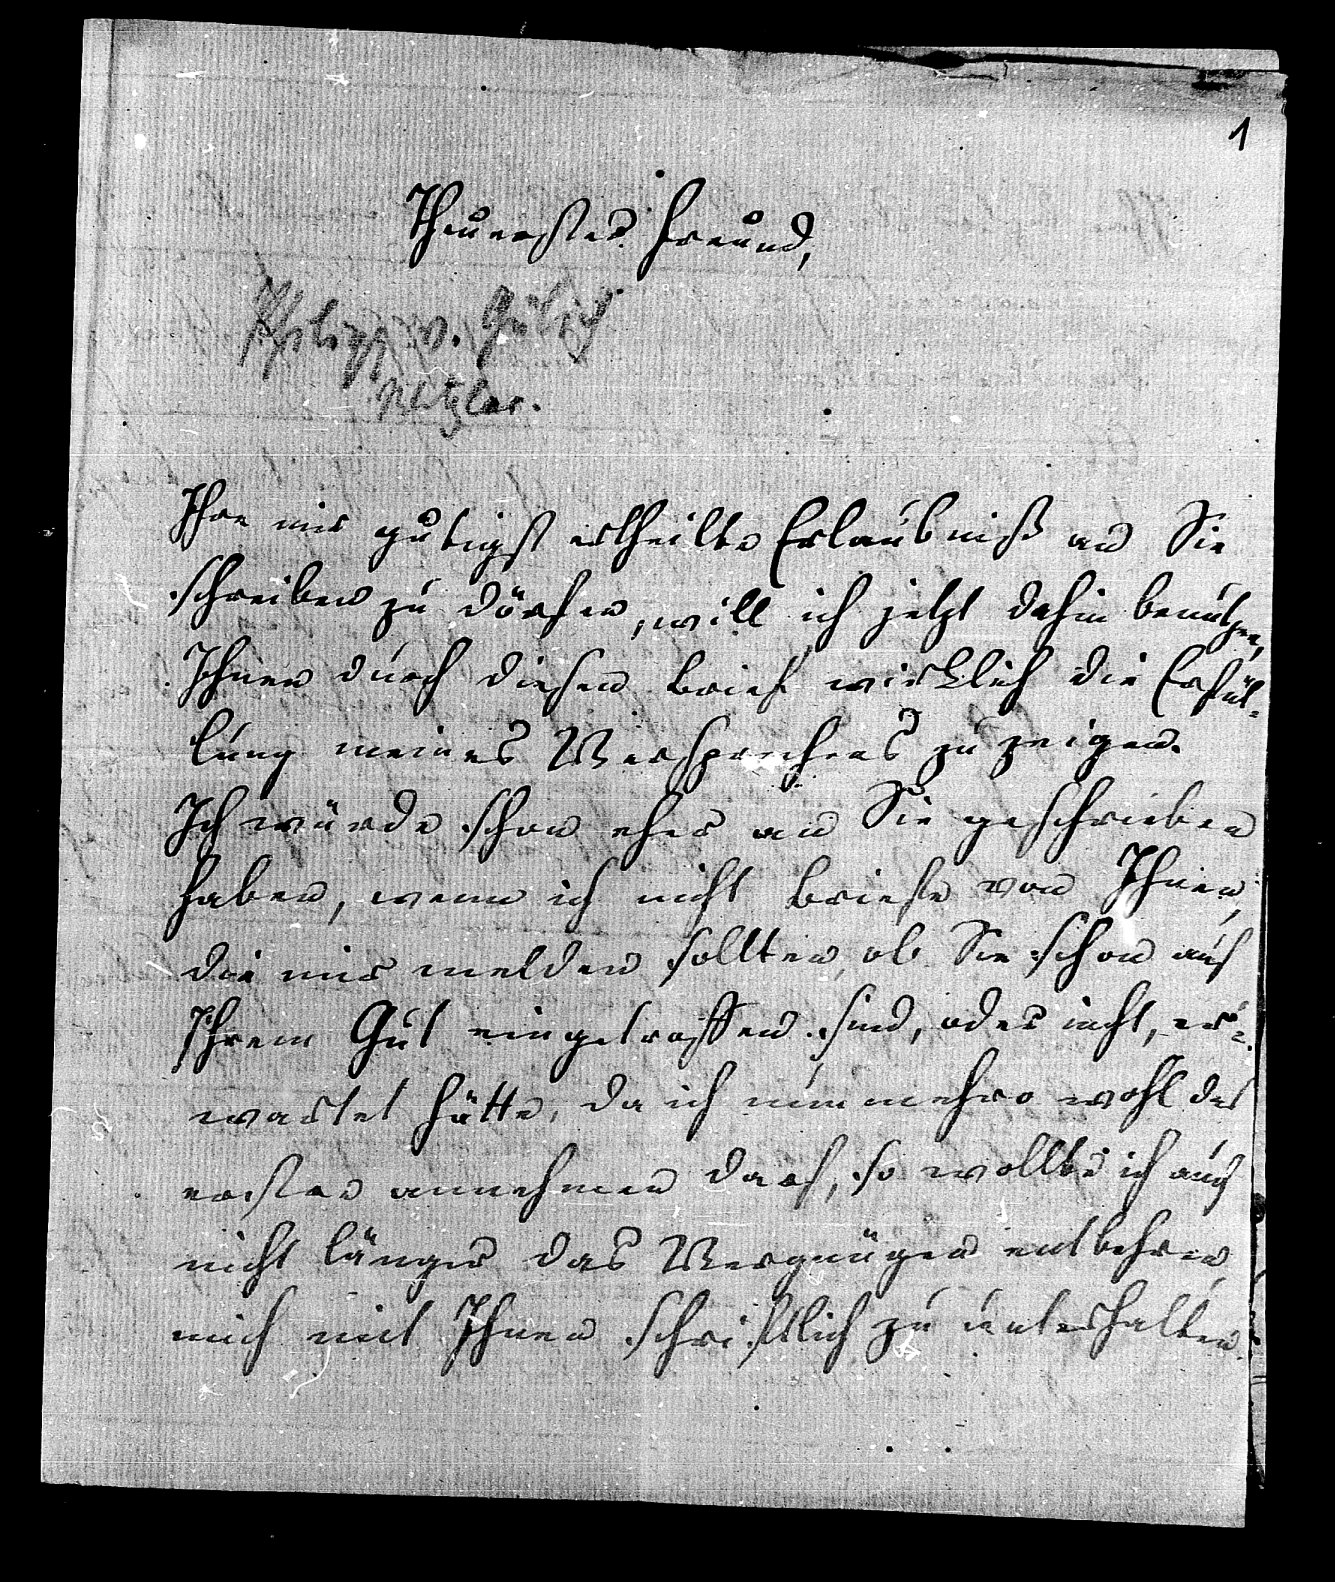 1
Theuerster Freund,
Philipp v. Gülich
Wetzlar.
Ihre mir gütigst ertheilte Erlaubniß an Sie
schreiben zu dörfen, will ich jetzt dahin benutzen,
Ihnen durch diesen Brief wirklich die Erfül-
lung meines Versprechens zu zeigen.
Ich würde schon eher an Sie geschrieben
haben, wenn ich nicht Briefe von Ihnen,
die mir melden sollten, ob Sie schon auf
Ihrem Gut eingetroffen sind, oder nicht, er-
wartet hätte, da ich nunmehro wohl das
erstere annehmen darf, so wollte ich auch
nicht länger das Vergnügen entbehren,
mich mit Ihnen schriftlich zu unterhalten.